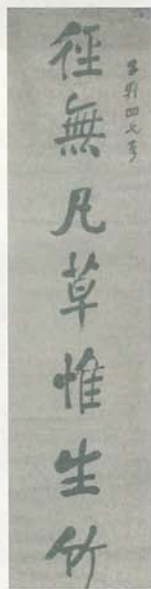 徑無凡草惟生竹